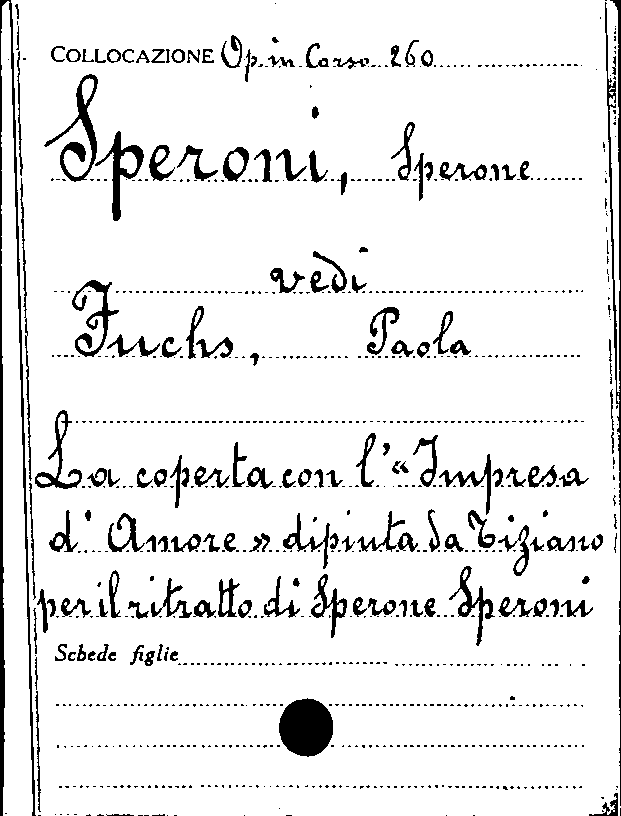 COLLOCAZIONE Op. in Corso 260
Speroni, Sperone
vedi
Fuchs, Paola
La coperta con l'«Impresa
d'Amore» dipinta da Tiziano
per il ritratto di Sperone Speroni
Schede figlie